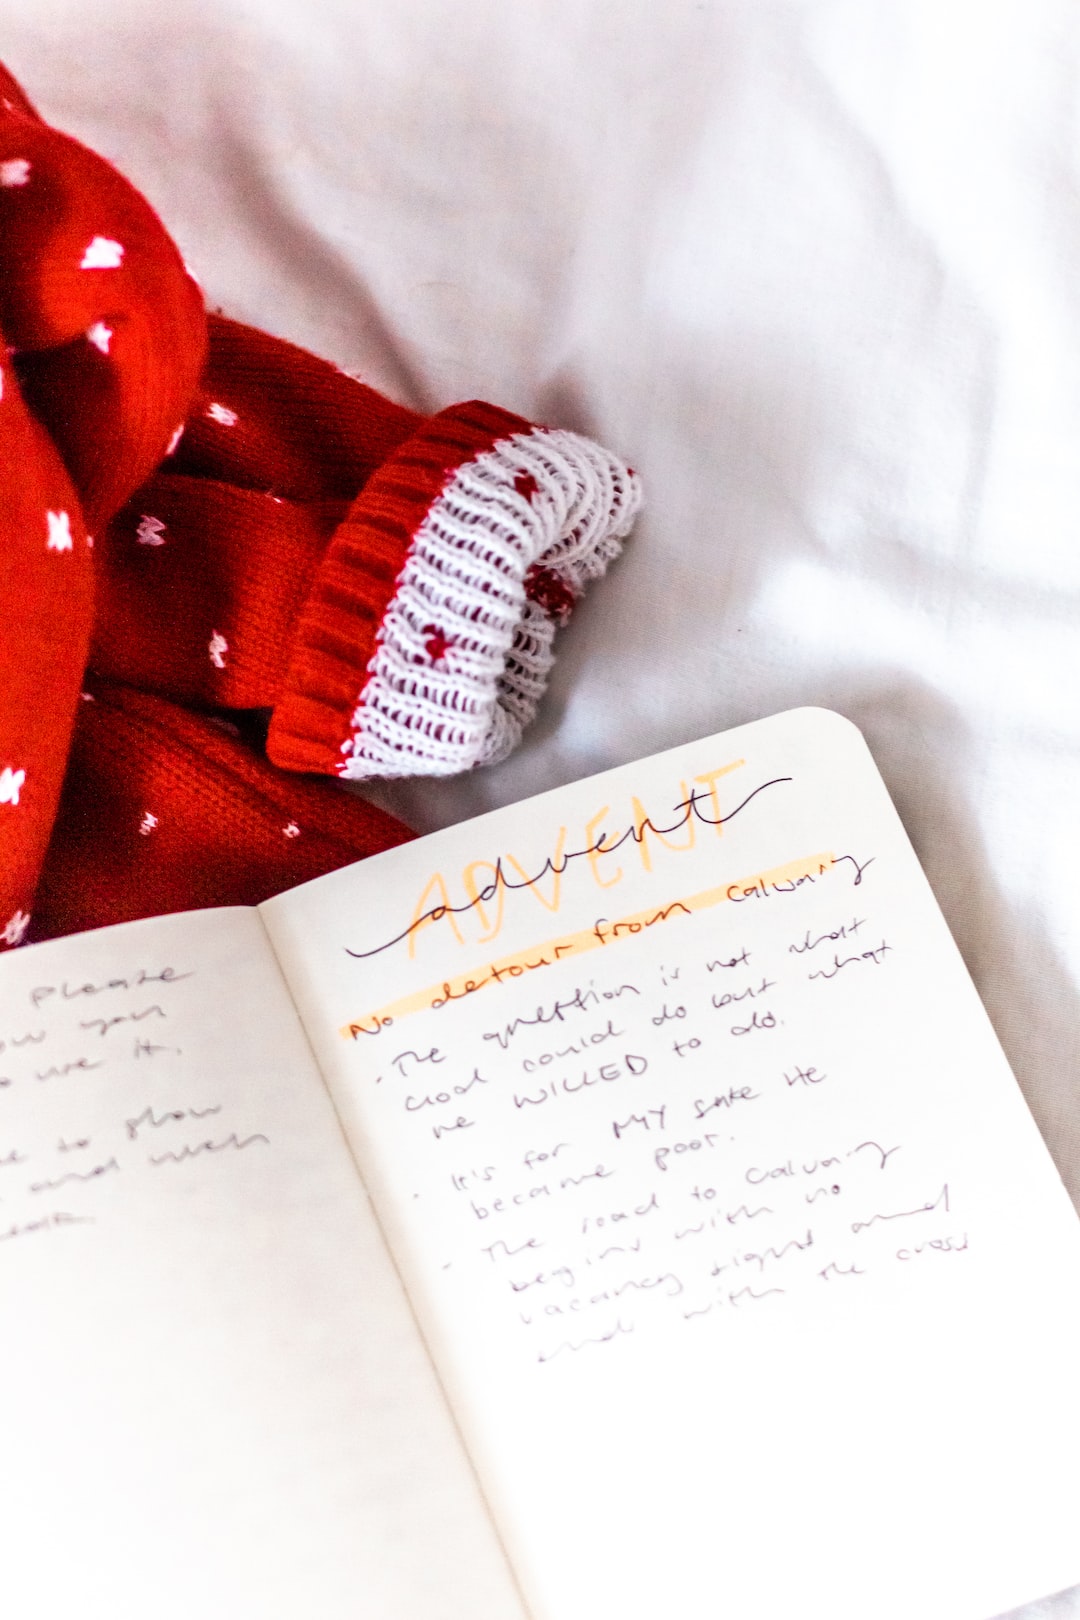 Please
you
use it.
to show
and when
ADVENT
advent
No detour from Calvary
. The question is not what
God could do but what
He WILLED to do.
. It's for MY sake He
became poor.
. The road to Calvary
begins with no
vacancy signs and
ends with the cross